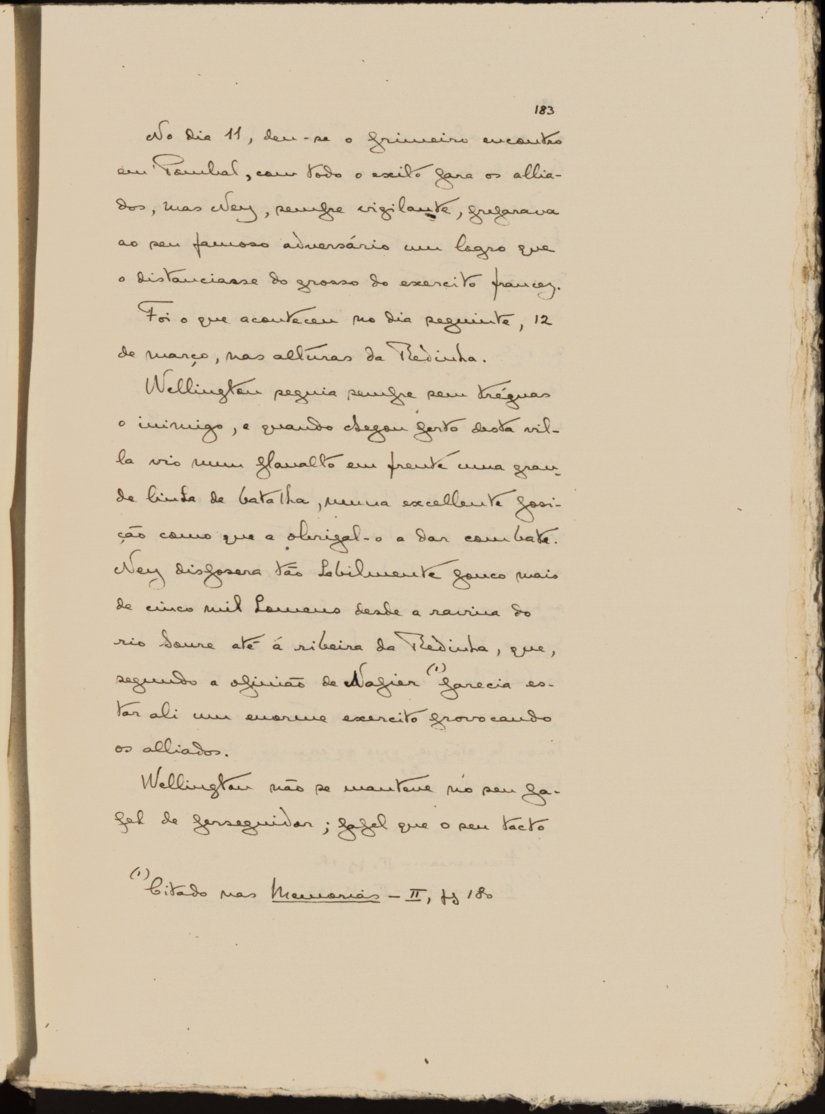 183
No dia 11, deu-se o primeiro encontro
em Pombal, com todo o exito para os allia-
dos, mas Ney, sempre vigilante, preparava
ao seu famoso adversário um logro que
o distanciasse do grosso do exercito francez.
Foi o que aconteceu no dia seguinte, 12
de março, nas alturas da Redinha.
Wellington seguia sempre sem tréguas
o inimigo, e quando chegou perto desta vil-
la vio num planalto em frente uma gran-
de linha de batalha, numa excellente posi-
ção como que a obrigal-o a dar combate.
Ney dispozera tão habilmente pouco mais
de cinco mil homens desde a ravina do
rio Soure até á ribeira da Redinha, que,
segundo a opinião de Napier (1) parecia es-
tar ali um enorme exercito provocando
os alliados.
Wellington não se manteve no seu pa-
pel de perseguidor; papel que o seu tacto
(1) Citado nas Memorias - II, pg 180